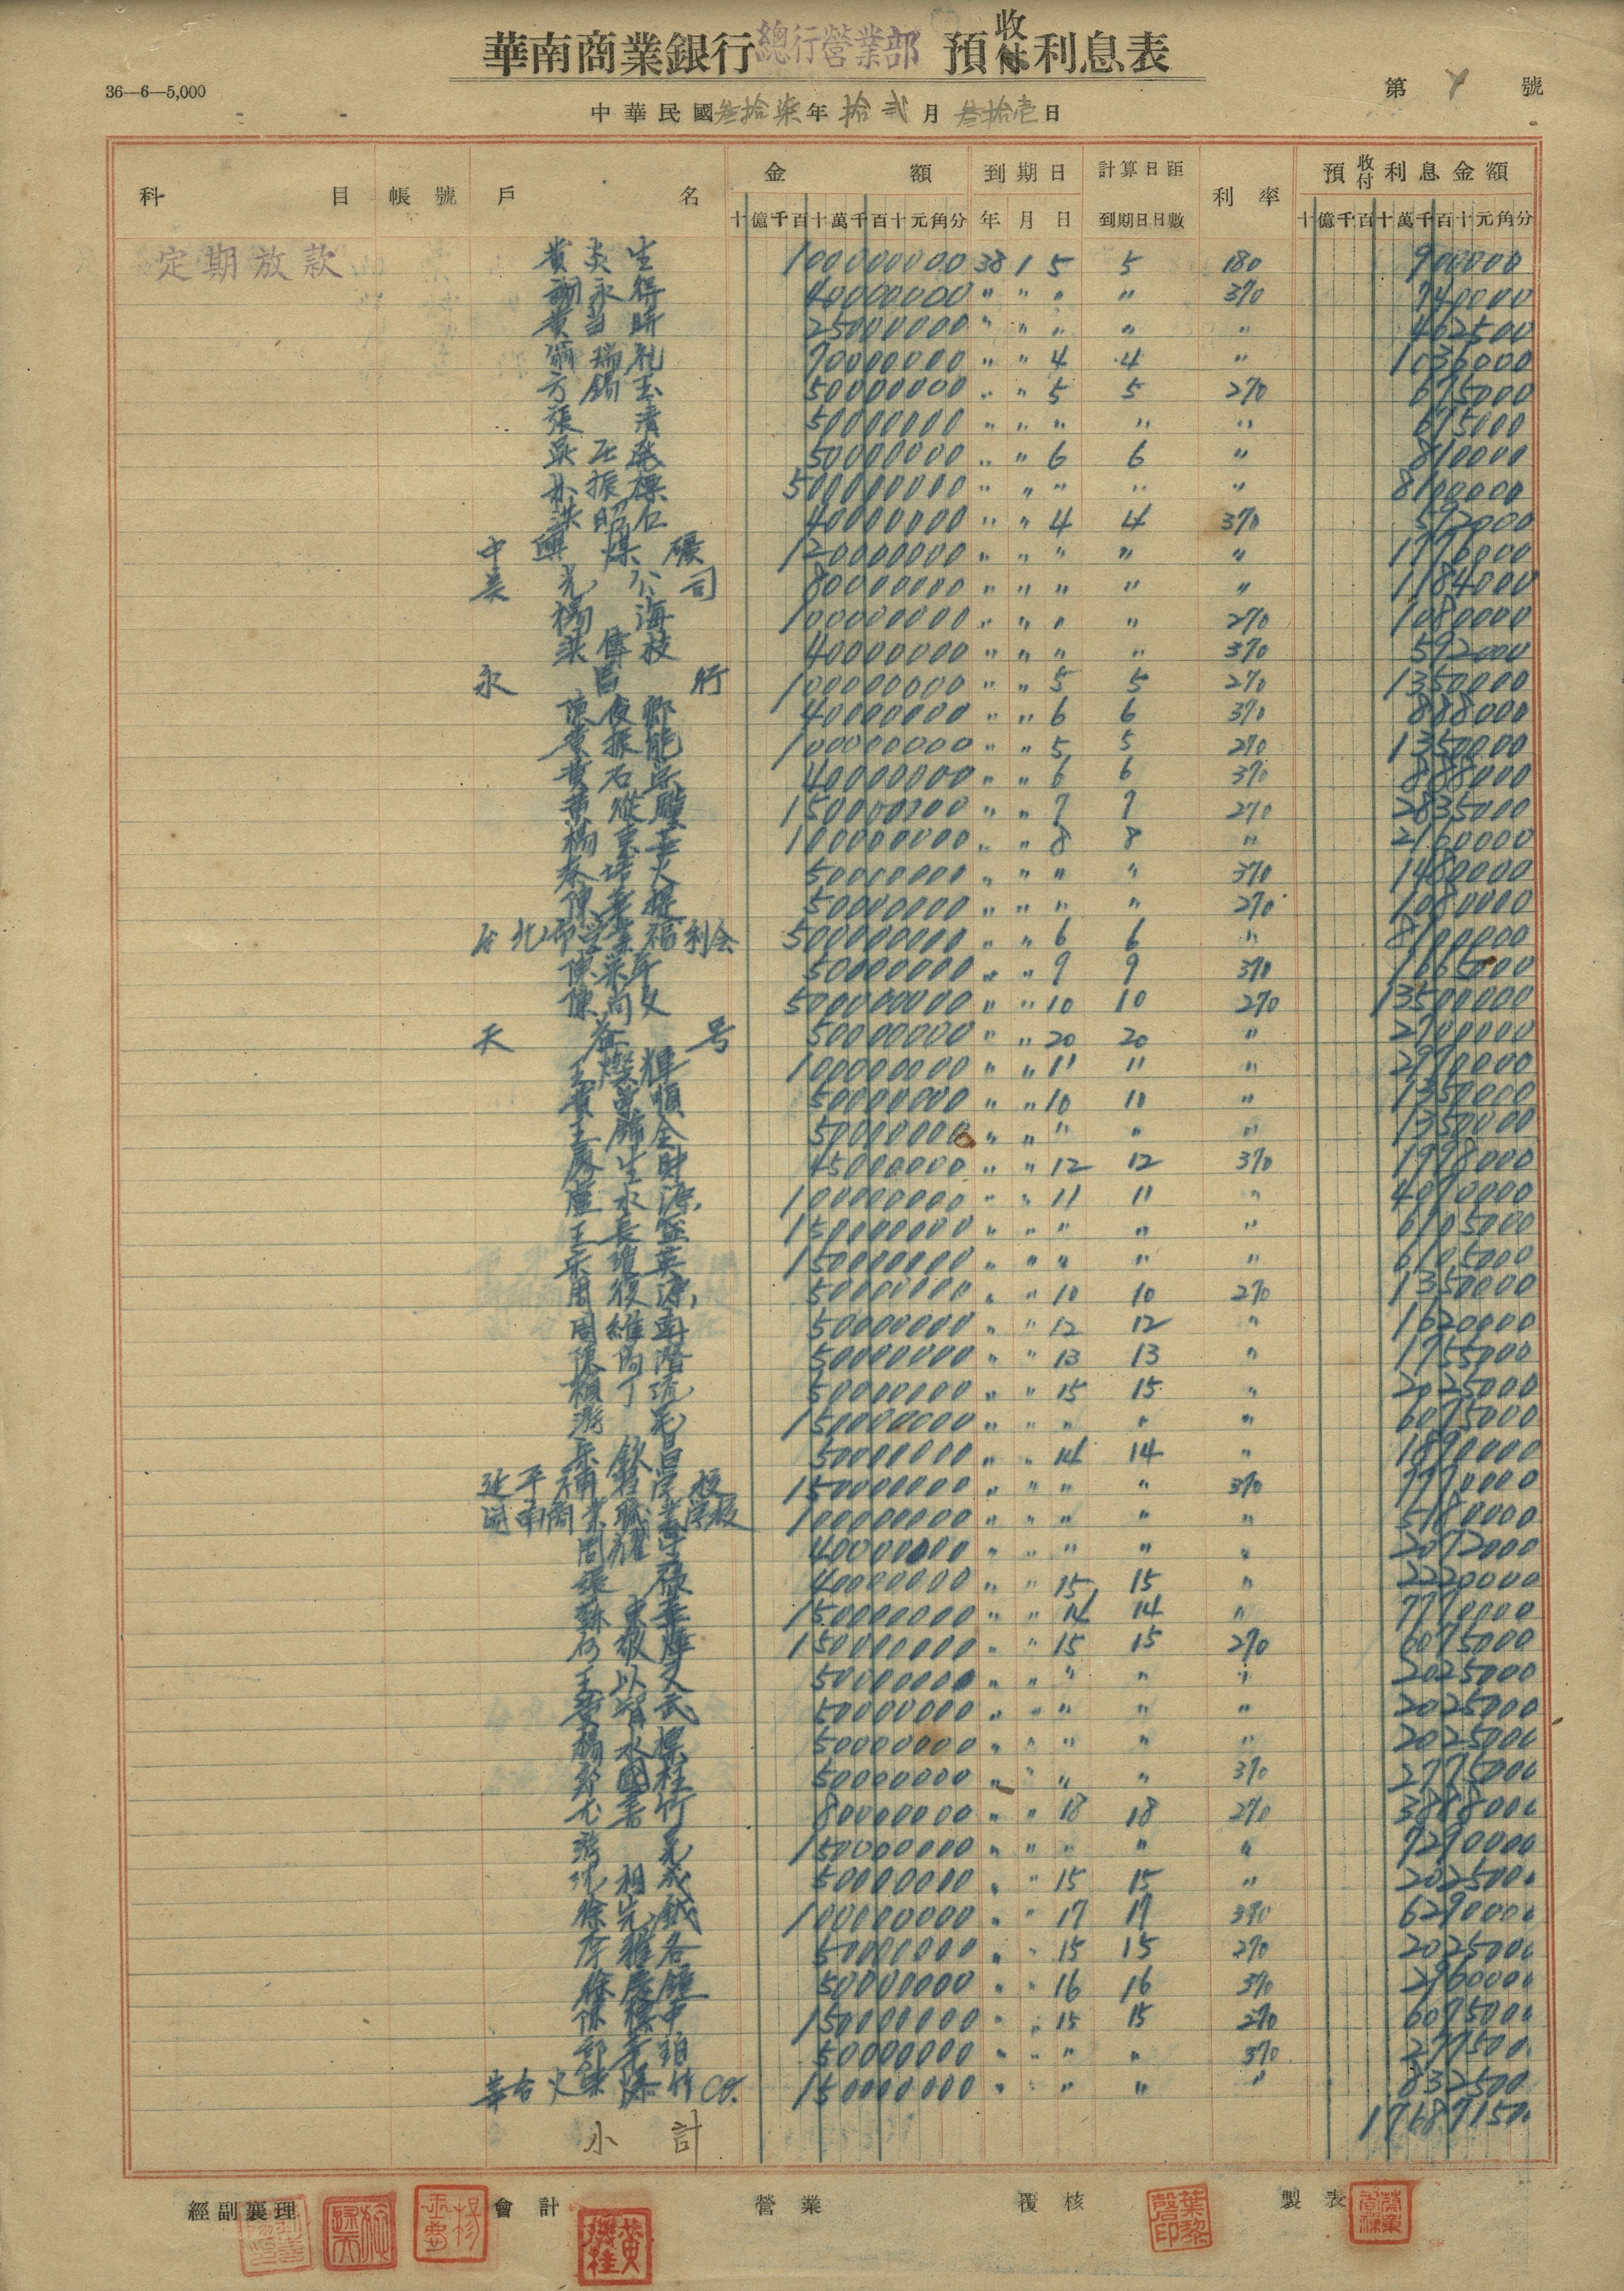 華南商業銀行總行營業部 預收付利息表
36—6—5,000
第 4 號
中華民國叁拾柒年拾弍月叁拾壱日
科目 帳號 戶名 金額 到期日 計算日距到期日日數 利率 預收付利息金額
十億千百十萬千百十元角分 年月日 十億千百十萬千百十元角分
定期放款 黃炎生 100000000 38 1 5 5 180 900000
永得 40000000 〃 〃 〃 〃 370 740000
黃 25000000 〃 〃 〃 〃 〃 462500
瑞礼 70000000 〃 〃 4 4 〃 1036000
方錫玉 50000000 〃 〃 5 5 270 675000
張清 50000000 〃 〃 〃 〃 〃 675000
50000000 〃 〃 6 6 〃 810000
振標 500000000 〃 〃 〃 〃 〃 8100000
洪昭仁 40000000 〃 〃 4 4 370 592000
中興煤礦 120000000 〃 〃 〃 〃 〃 1776000
美光公司 80000000 〃 〃 〃 〃 〃 1184000
楊海 100000000 〃 〃 〃 〃 270 1080000
洪傳枝 40000000 〃 〃 〃 〃 370 592000
永昌行 100000000 〃 〃 5 5 270 1350000
陳夜鄉 40000000 〃 〃 6 6 370 888000
振能 100000000 〃 〃 5 5 270 1350000
黃石 40000000 〃 〃 6 6 370 888000
黃縱 150000000 〃 〃 7 7 270 2835000
楊東華 100000000 〃 〃 8 8 〃 2160000
蔡培火 50000000 〃 〃 〃 〃 370 1480000
陳 50000000 〃 〃 〃 〃 270 1080000
台北市学業福利会 500000000 〃 〃 6 6 〃 8100000
陳采年 50000000 〃 〃 9 9 370 1665000
陳尚文 500000000 〃 〃 10 10 270 13500000
天益号 50000000 〃 〃 20 20 〃 2700000
王燦輝 100000000 〃 〃 11 11 〃 2970000
黃萬順 50000000 〃 〃 10 10 〃 1350000
王錦全 50000000 〃 〃 〃 〃 〃 1350000
廖生財 45000000 〃 〃 12 12 370 1998000
蘆水源 100000000 〃 〃 11 11 〃 4070000
王長盛 150000000 〃 〃 〃 〃 〃 6105000
瓊英 150000000 〃 〃 〃 〃 〃 6105000
周復源 50000000 〃 〃 10 10 270 1350000
周維南 50000000 〃 〃 12 12 〃 1620000
陳尚潛 50000000 〃 〃 13 13 〃 1755000
賴丁流 50000000 〃 〃 15 15 〃 2025000
游 150000000 〃 〃 〃 〃 〃 6075000
欽昌 50000000 〃 〃 14 14 〃 1890000
延平補習学校 150000000 〃 〃 〃 〃 370 7770000
開南商業職業学校 100000000 〃 〃 〃 〃 〃 5180000
周耀 40000000 〃 〃 〃 〃 〃 2072000
張祿 40000000 〃 〃 15 15 〃 2220000
東華 150000000 〃 〃 14 14 〃 7770000
何敬燁 150000000 〃 〃 15 15 270 6075000
王以文 50000000 〃 〃 〃 〃 〃 2025000
智武 50000000 〃 〃 〃 〃 〃 2025000
楊水標 50000000 〃 〃 〃 〃 〃 2025000
郭國柱 50000000 〃 〃 〃 〃 370 2775000
尤善竹 80000000 〃 〃 18 18 270 3888000
游 150000000 〃 〃 〃 〃 〃 7290000
沈相成 50000000 〃 〃 15 15 〃 2025000
徐光鉞 100000000 〃 〃 17 17 370 6290000
李雅各 50000000 〃 〃 15 15 270 2025000
徐慶鐘 50000000 〃 〃 16 16 370 2960000
陳標中 150000000 〃 〃 15 15 270 6075000
郭 50000000 〃 〃 〃 〃 370 277500
華台火柴煤竹Co. 150000000 〃 〃 〃 〃 〃 832500
小計 17687150
經副襄理 會計 營業 覆核 製表